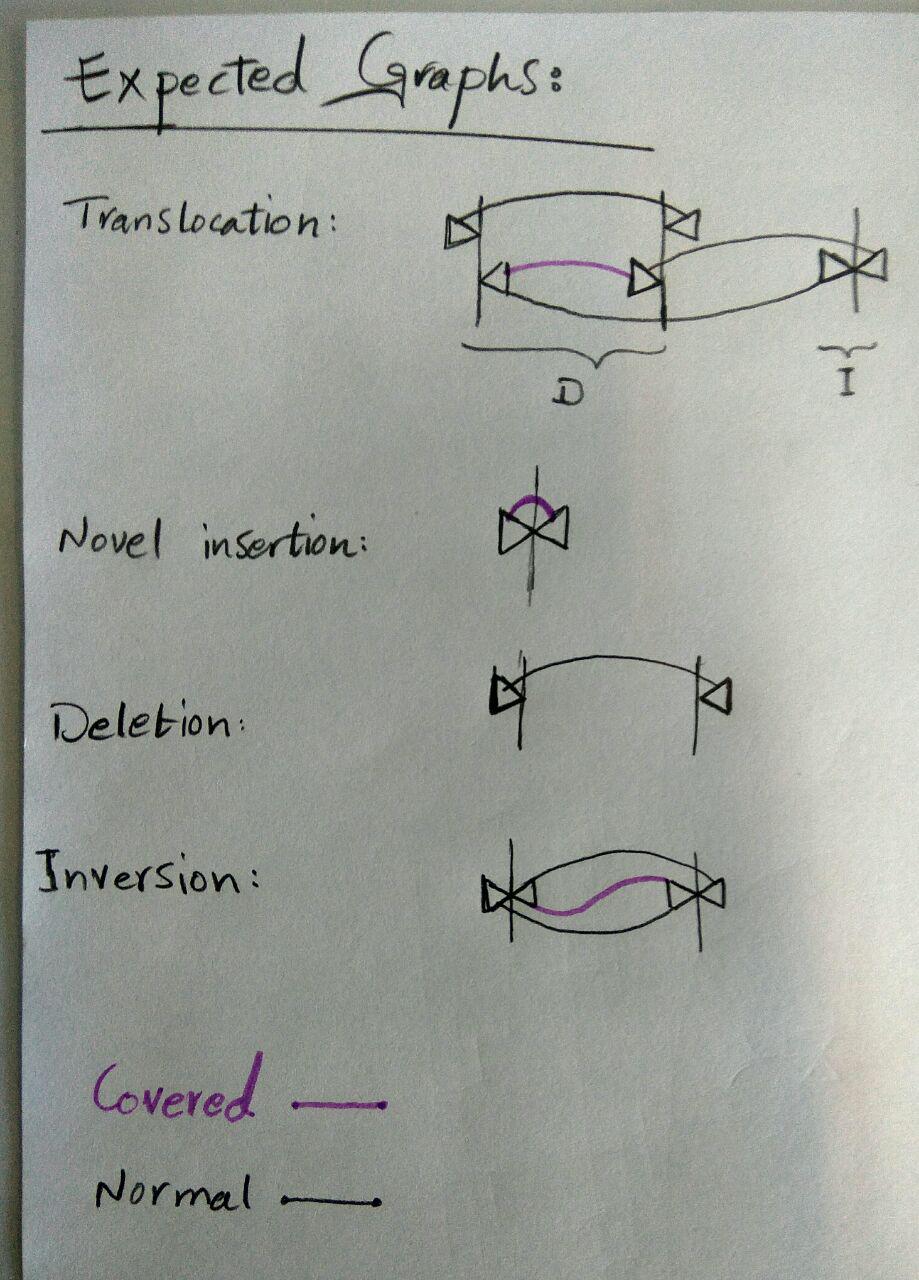 Expected Graphs:
Translocation:
D I
Novel insertion:
Deletion:
Inversion:
Covered
Normal